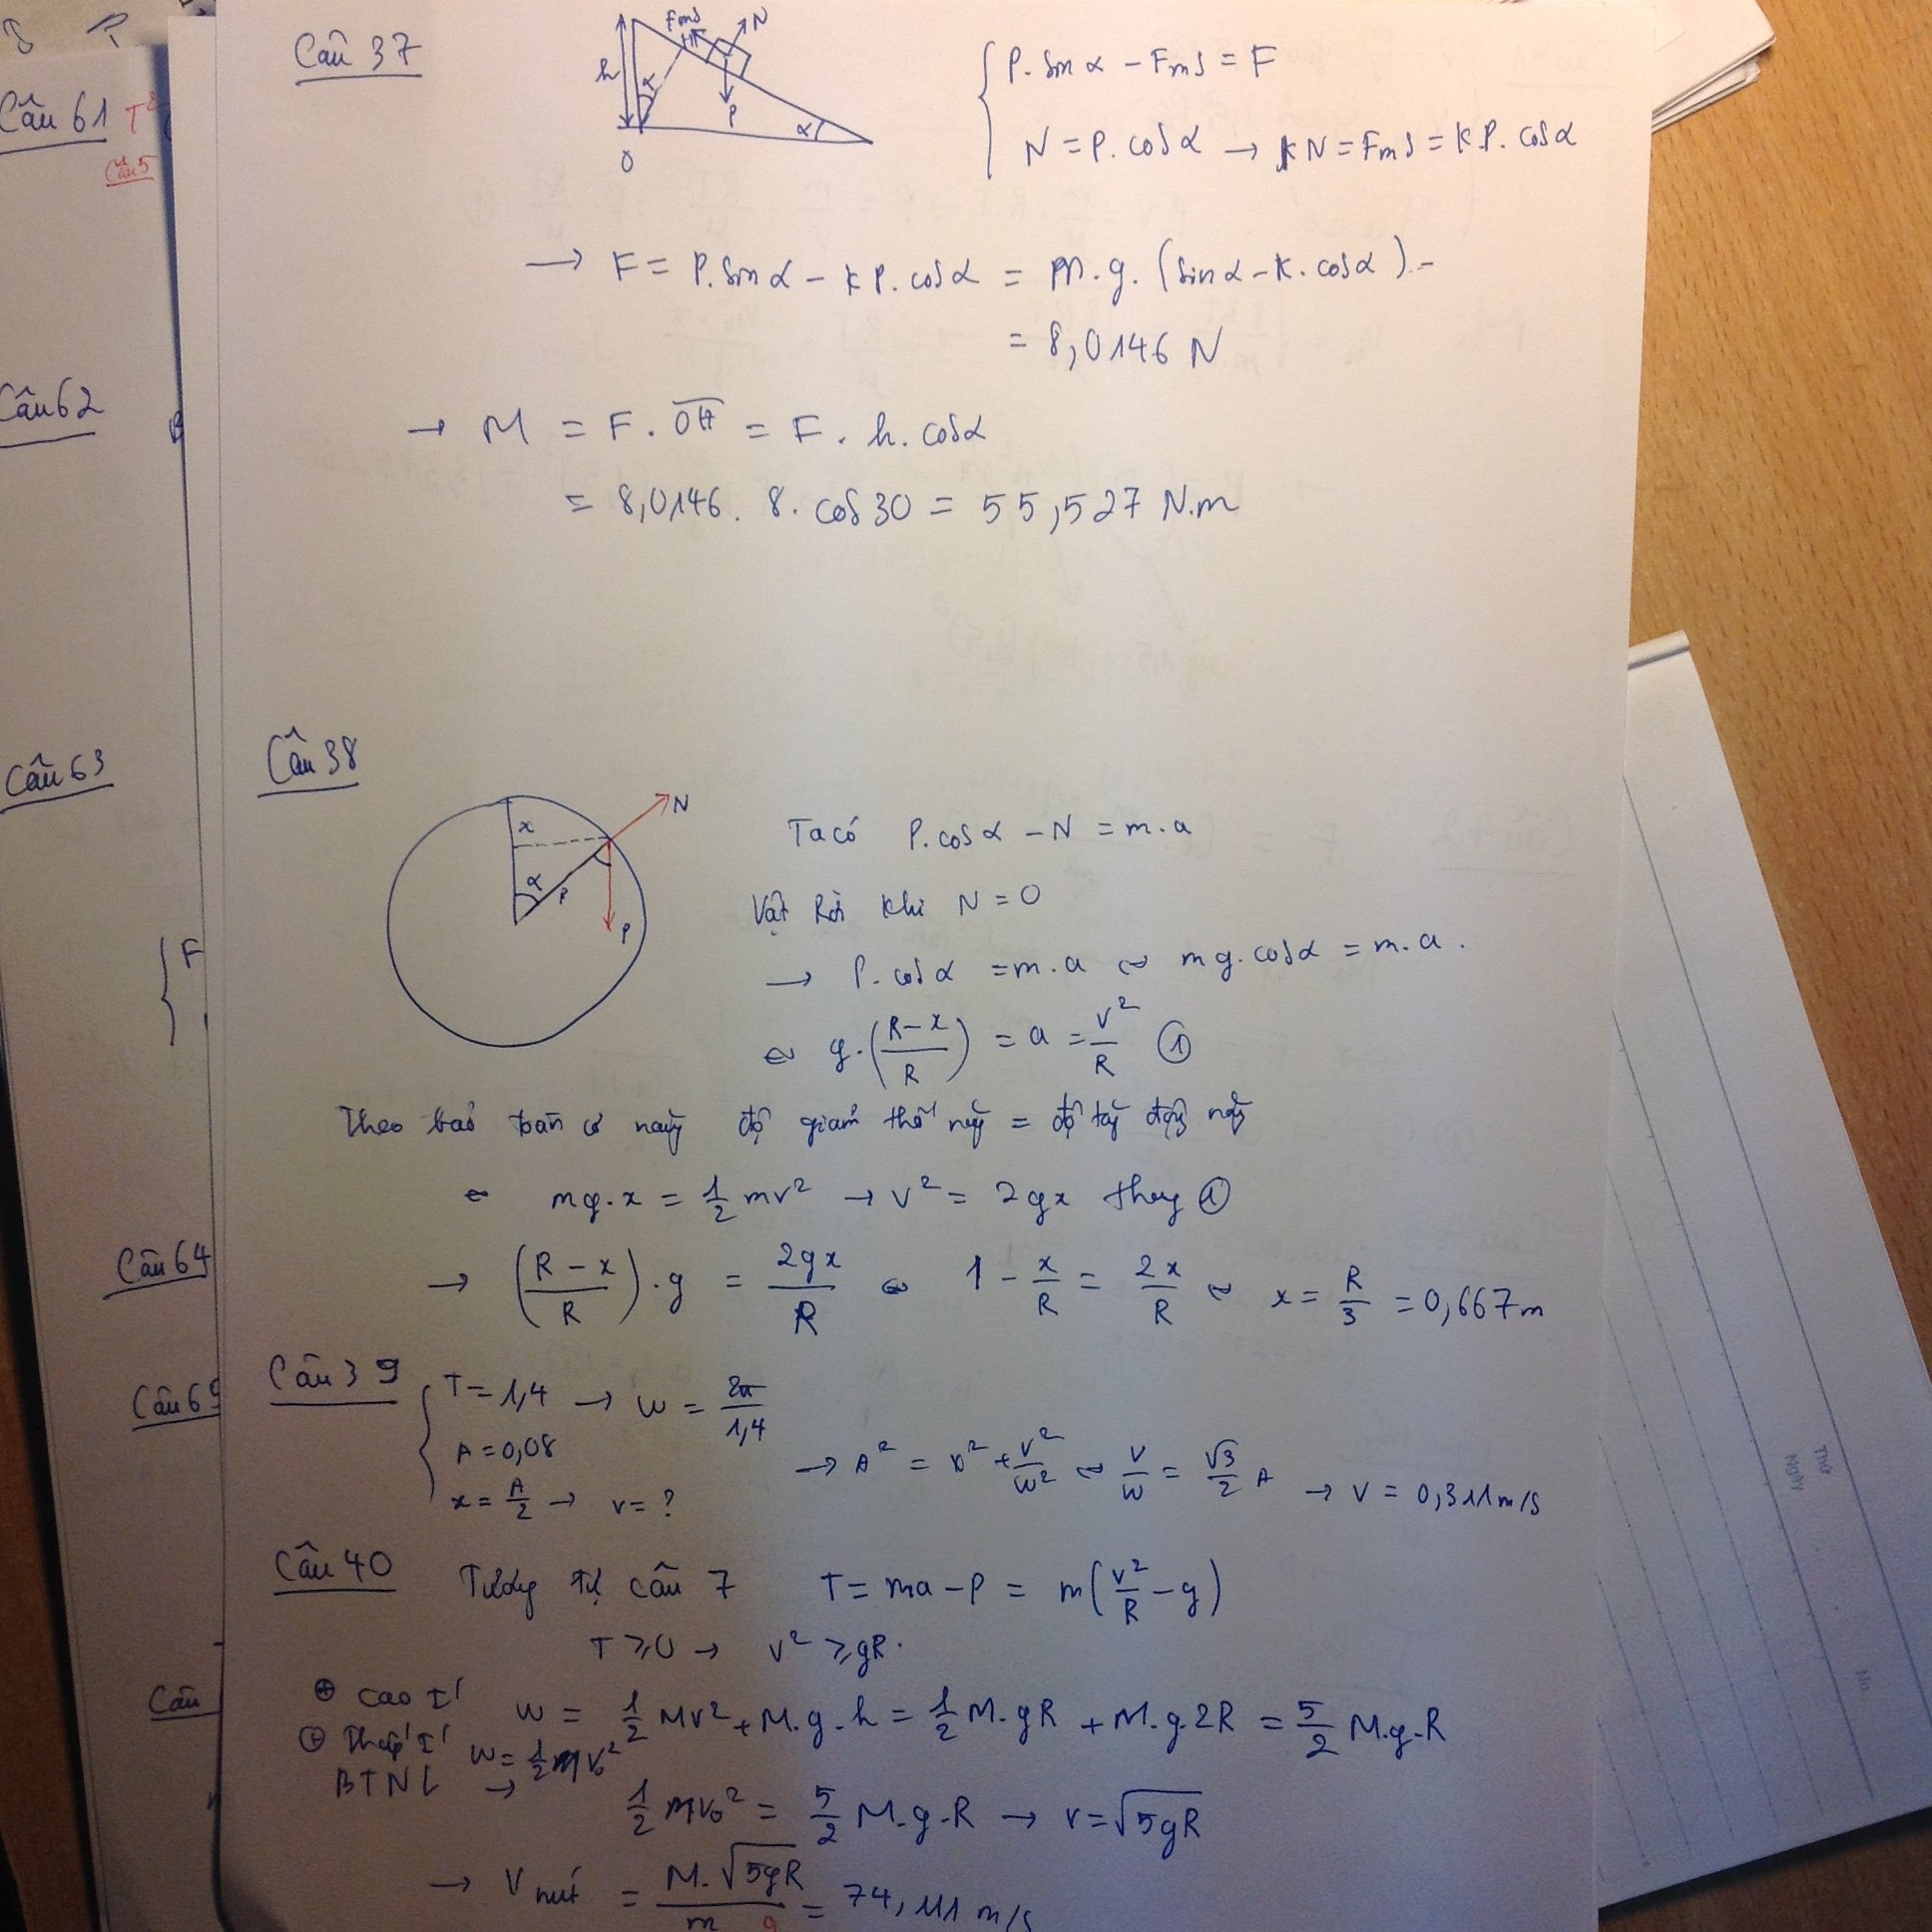 Câu 61 T
Câu 5
Câu 62
Câu 63
{ F
Câu 64
Câu 65
Câu
Câu 37
h α Fms H N P α O
P. sin α – Fms = F
N = P. cos α → kN = Fms = k P. cos α
→ F = P. sin α – k P. cos α = m. g. (sin α – k. cos α) . –
= 8,0146 N
→ M = F. OH = F . h. cos α
= 8,0146. 8. cos 30 = 55,527 N.m
Câu 38
x α P N
Ta có P. cos α – N = m. a
Vật Rời khi N = 0
→ P. cos α = m. a ⇔ m g. cos α = m. a .
⇔ g. (R – x / R) = a = v² / R ①
Theo bảo toàn cơ năng độ giảm thế năng = độ tăng động năng
⇔ mg. x = 1/2 mv² → v² = 2gx thay ①
→ (R – x / R) . g = 2gx / R ⇔ 1 – x/R = 2x/R ⇔ x = R/3 = 0,667 m
Câu 39 T = 1,4 → ω = 2π / 1,4
A = 0,08
→ A² = x² + v²/ω² ⇔ v/ω = √3/2 A → v = 0,311 m/s
x = A/2 → v = ?
Câu 40 Tương tự câu 7 T = ma – P = m (v²/R – g)
T ≥ 0 → v² ≥ gR .
⊕ Cao I' W = 1/2 Mv² + M. g. h = 1/2 M. gR + M. g. 2R = 5/2 M.g.R
⊕ Thấp I' W = 1/2 m v₀²
BTNL → 1/2 m v₀² = 5/2 M. g. R → v = √5gR
→ V nút = M. √5gR / m = 74,111 m/s
Thứ
Ngày
No